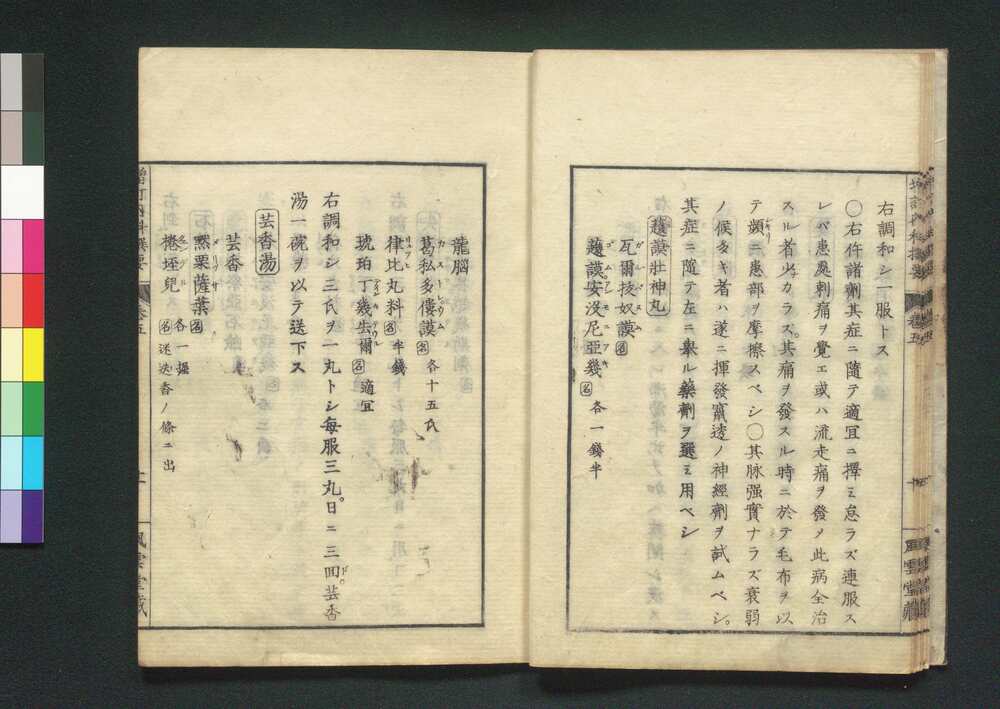 右調和シ一服トス
〇右件諸劑其症ニ隨テ適宜ニ擇ミ怠ラズ連服ス
レバ患處刺痛ヲ覺エ或ハ流走痛ヲ發メ此病全治
スル者少カラズ。其痛ヲ發スル時ニ於テ毛布ヲ以
テ頻ニ患部ヲ摩擦スベシ〇其脉强實ナラズ衰弱
ノ候多キ者ハ遂ニ揮發竄透ノ神經劑ヲ試ムベシ。
其症ニ隨テ左ニ舉ル藥劑ヲ選ミ用ベシ
護謨壯神丸
瓦爾抜奴謨 名
護謨安没尼亞幾 名 各一錢半
龍腦
葛私多僂謨 名 各十五氏
律比丸料 名 半錢
琥珀丁幾去爾 名 適宜
右調和シ三氏ヲ一丸トシ每服三丸。日ニ三四度。芸香
湯一碗ヲ以テ送下ス
芸香湯
芸香
黙栗薩葉 名 各一握
捲垤兒 名 迷迭香ノ條ニ出
增訂內科撰要
卷五
十一
風雲堂藏